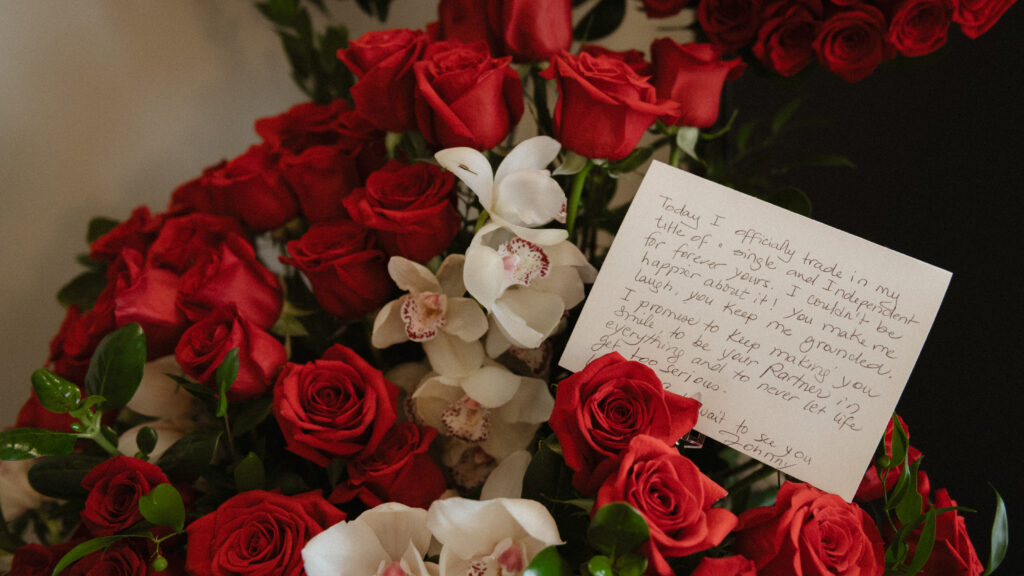 Today I officially trade in my
title of • single and Independent
for forever yours. I couldn't be
happier about it! You make me
laugh, you keep me grounded.
I promise to keep making you
smile to be your Partner in
everything and to never let life
get too serious.
wait to see you
Johnny